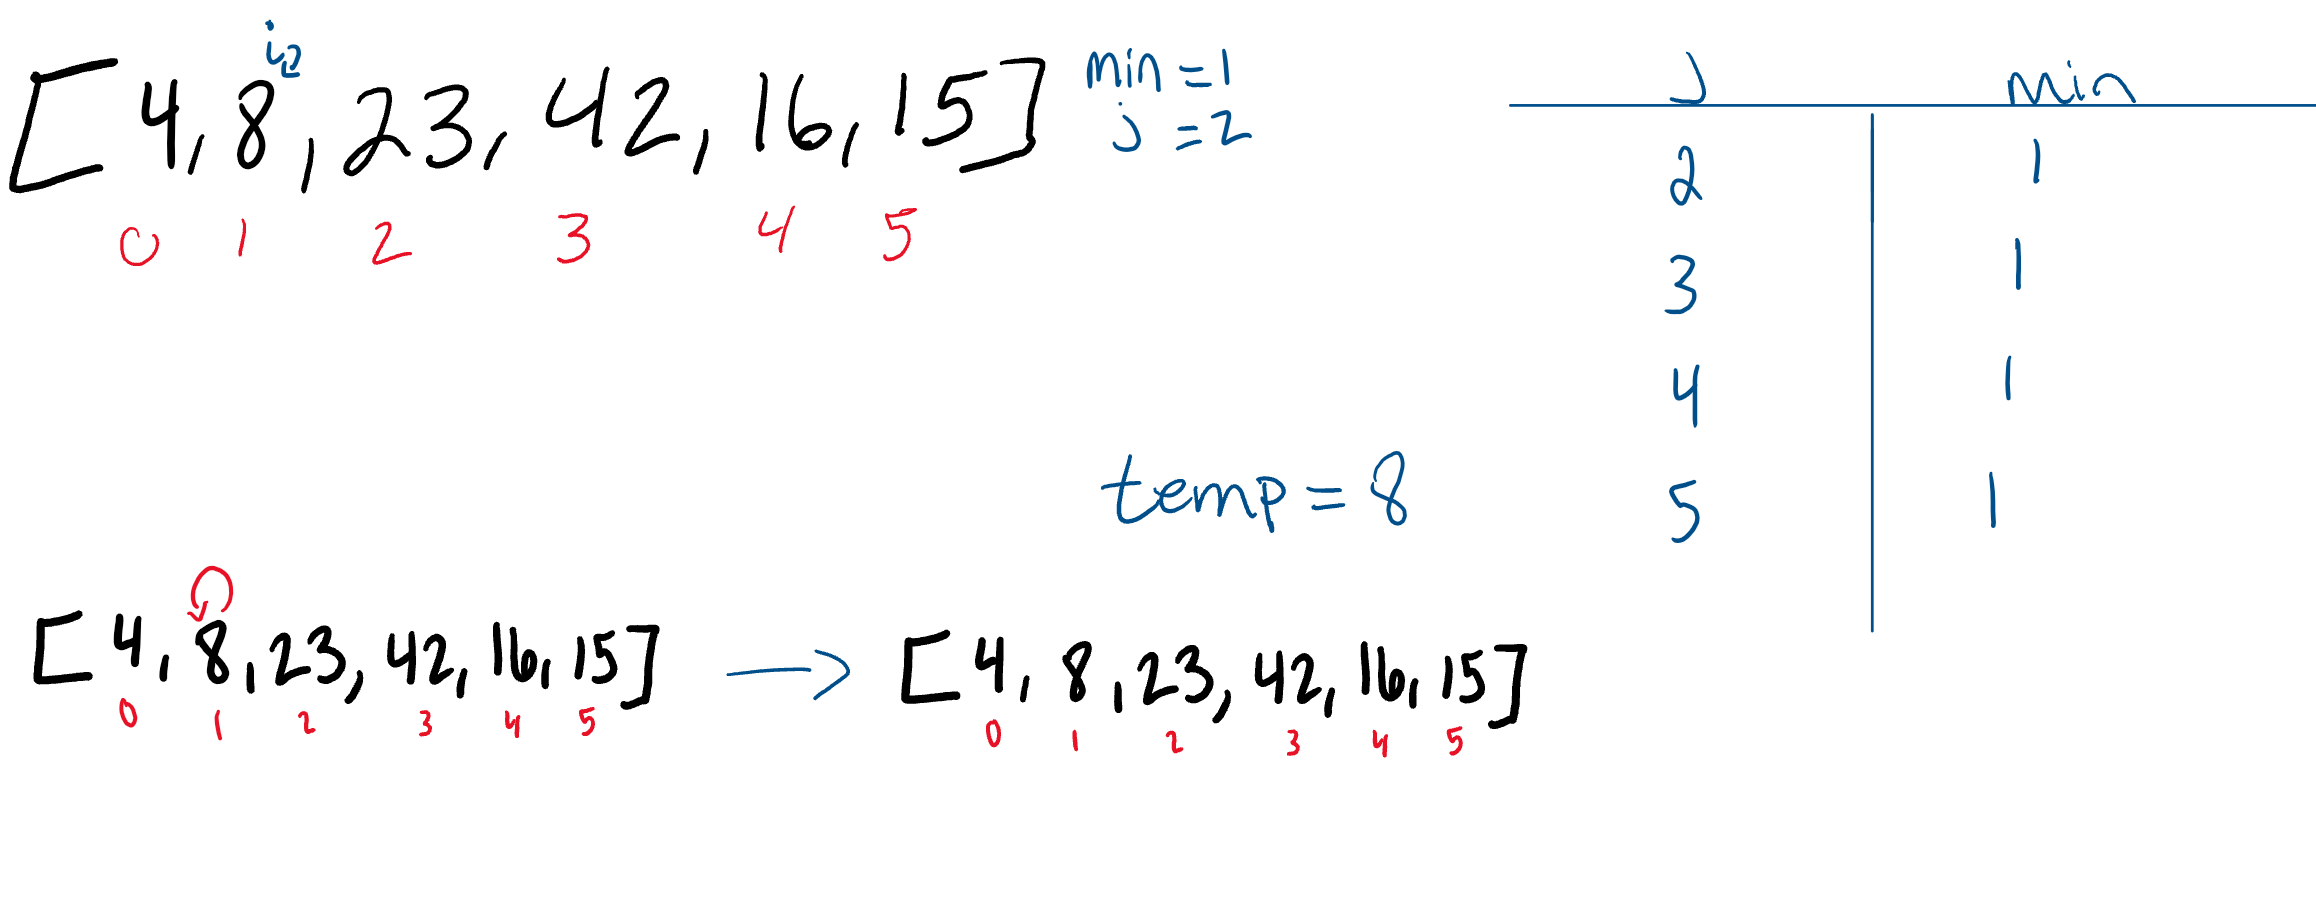 i
[4, 8, 23, 42, 16, 15]
0 1 2 3 4 5
min = 1
j = 2
J min
2 1
3 1
4 1
5 1
temp = 8
[4, 8, 23, 42, 16, 15] → [4, 8, 23, 42, 16, 15]
0 1 2 3 4 5 0 1 2 3 4 5